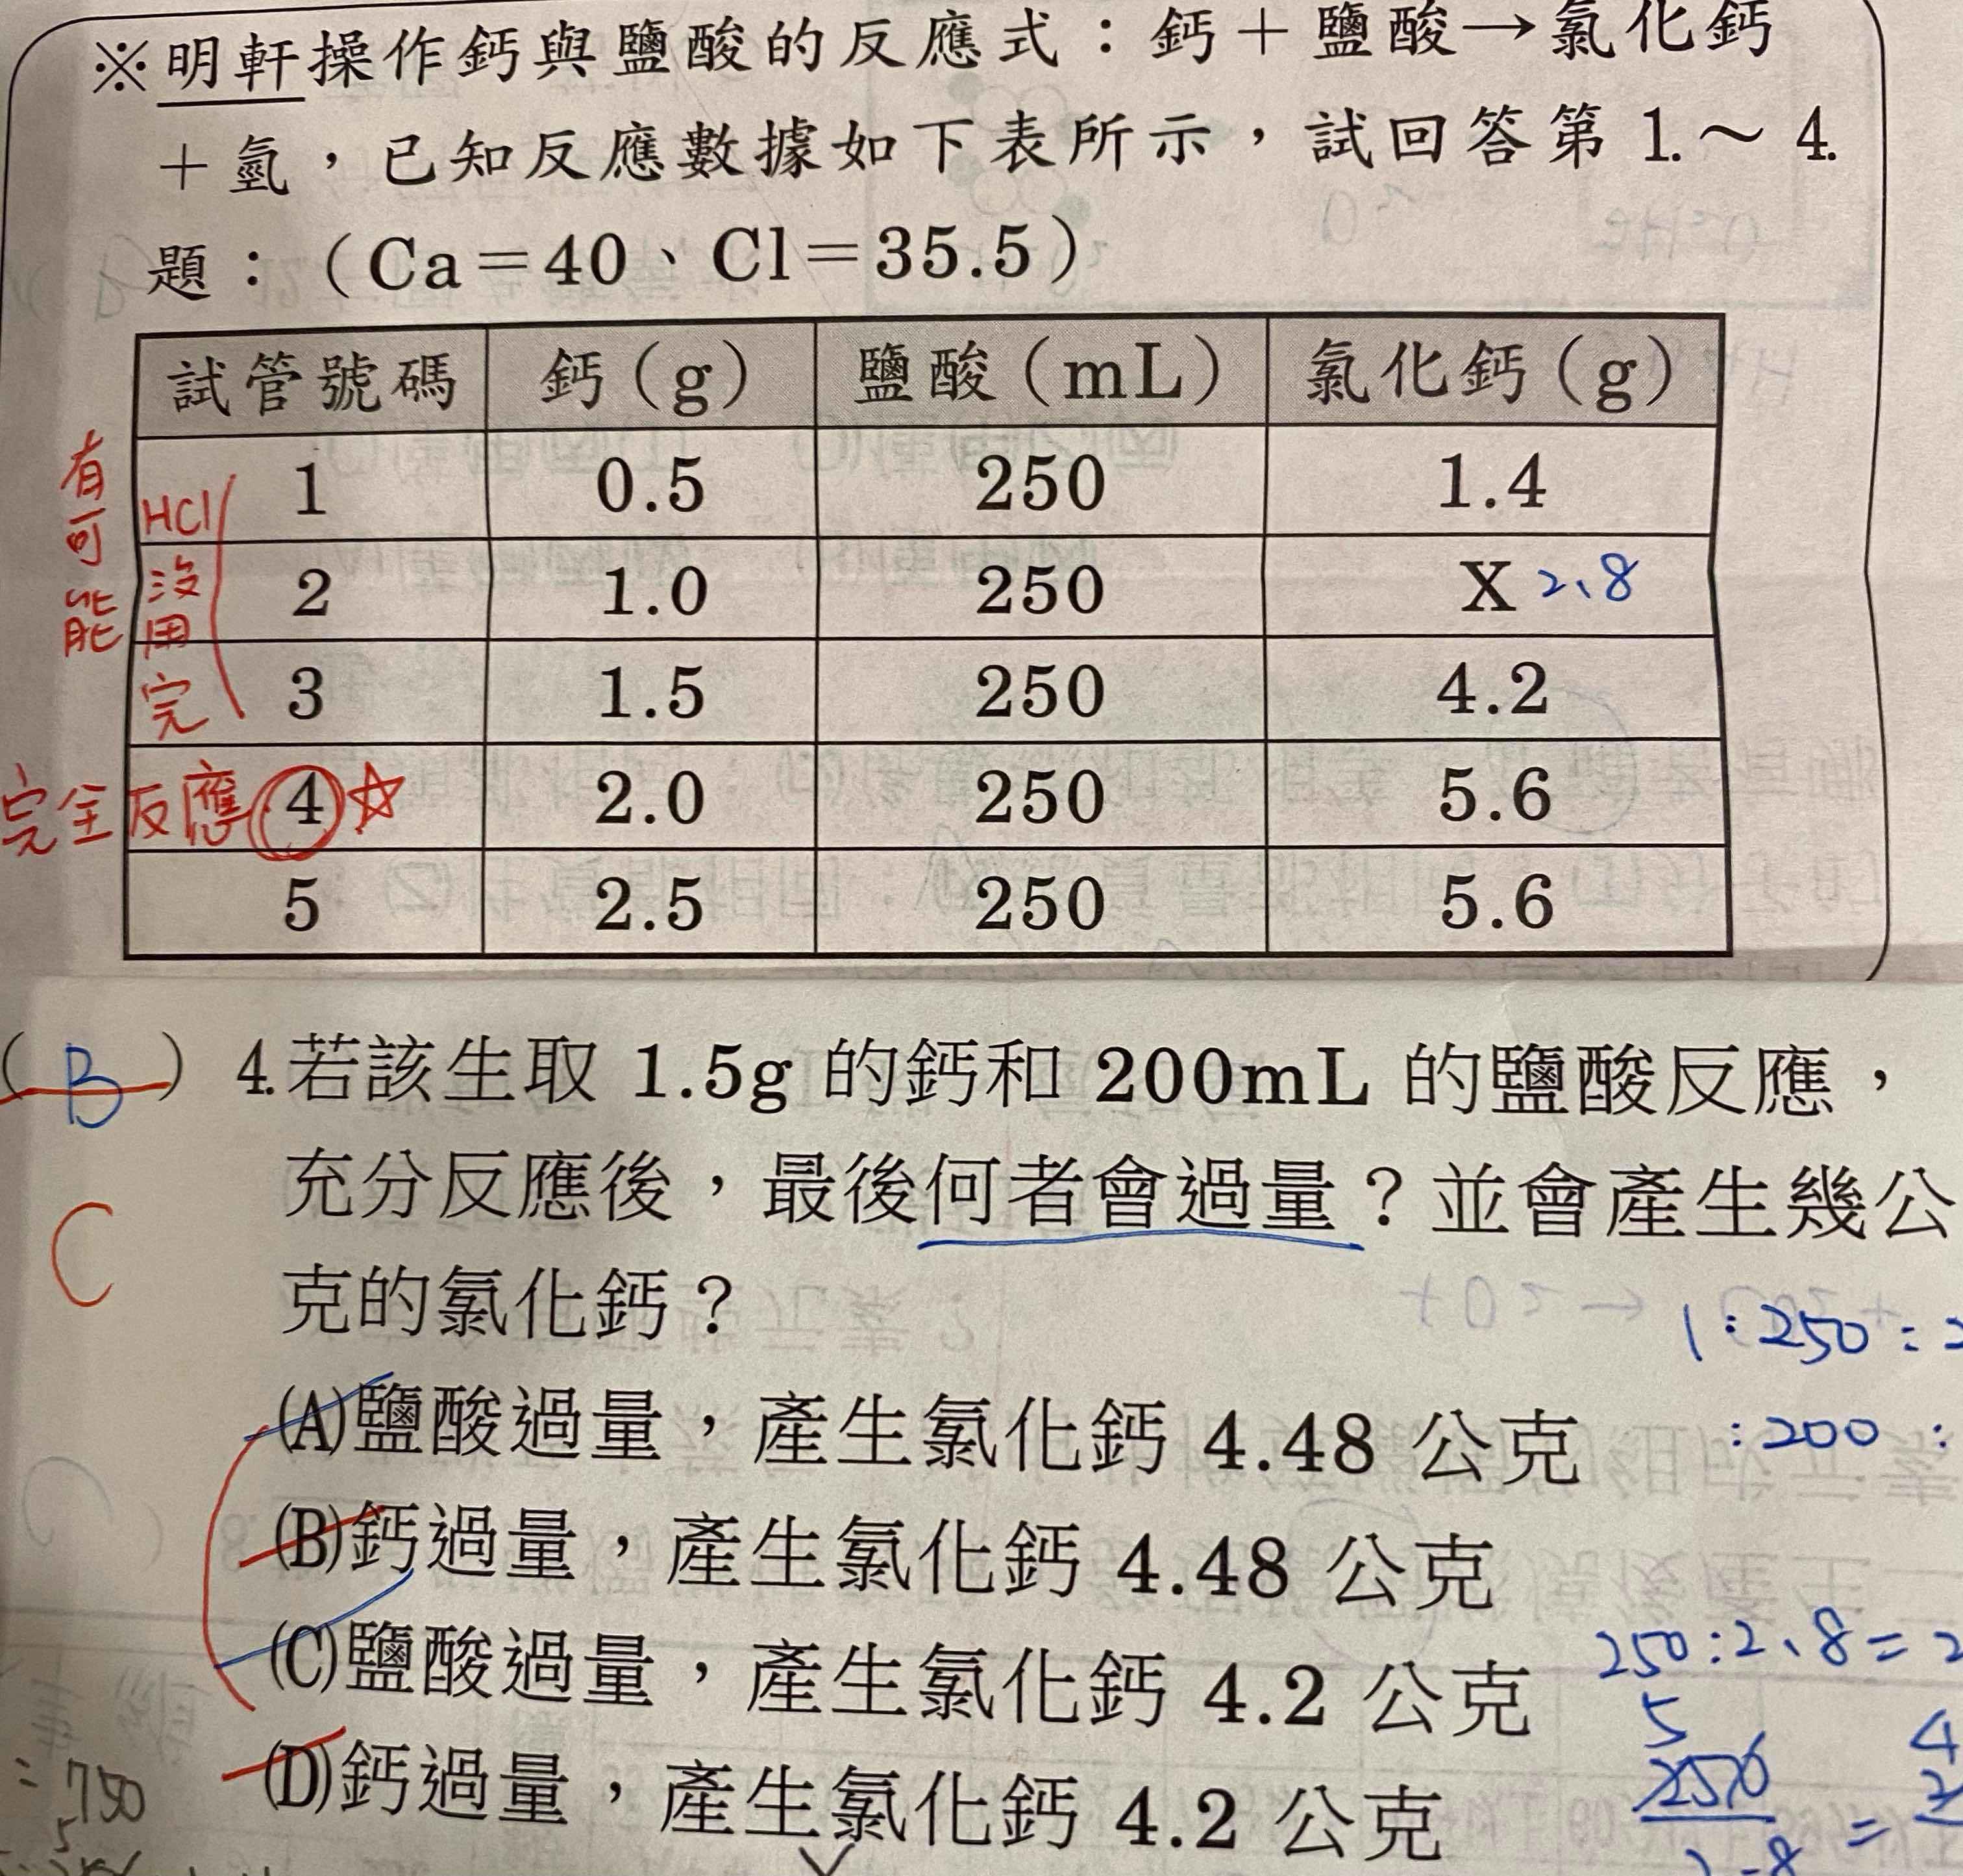 ※明軒操作鈣與鹽酸的反應式：鈣＋鹽酸→氯化鈣
＋氫，已知反應數據如下表所示，試回答第 1.～ 4.
題：（Ca＝40、Cl＝35.5）
試管號碼 鈣（g） 鹽酸（mL） 氯化鈣（g）
1 0.5 250 1.4
2 1.0 250 X 2、8
3 1.5 250 4.2
4 2.0 250 5.6
5 2.5 250 5.6
有可能
HCl
沒用完
完全反應
☆
(B) 4.若該生取 1.5g 的鈣和 200mL 的鹽酸反應，
C
充分反應後，最後何者會過量？並會產生幾公
克的氯化鈣？
1：250：
：200：
(A)鹽酸過量，產生氯化鈣 4.48 公克
(B)鈣過量，產生氯化鈣 4.48 公克
(C)鹽酸過量，產生氯化鈣 4.2 公克
(D)鈣過量，產生氯化鈣 4.2 公克
250:2、8=2
5
250
=
4
750